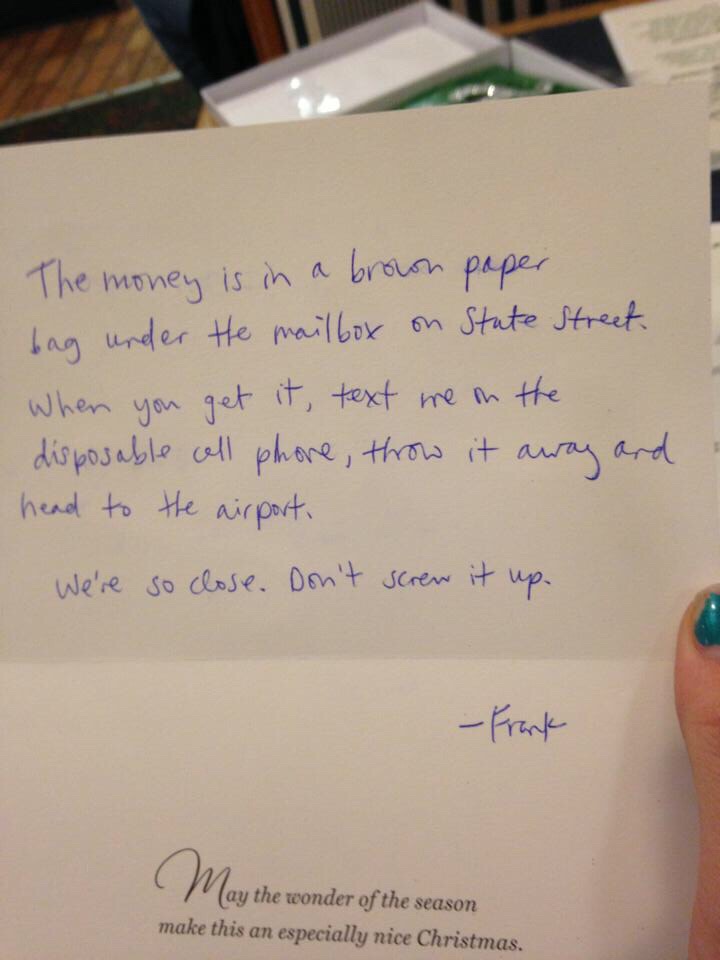 The money is in a brown paper
bag under the mailbox on State Street.
When you get it, text me on the
disposable cell phone, throw it away and
head to the airport.
We're so close. Don't screw it up.
-Frank
May the wonder of the season
make this an especially nice Christmas.